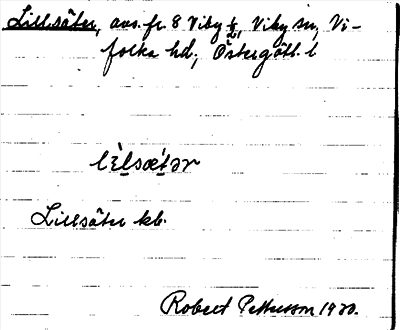 Lillsäter, avs. fr. 8 Viby 1/2, Viby sn, Vi-
folka hd, Östergötl. l
Lillsäter kb.
Robert Pettersson 1930.